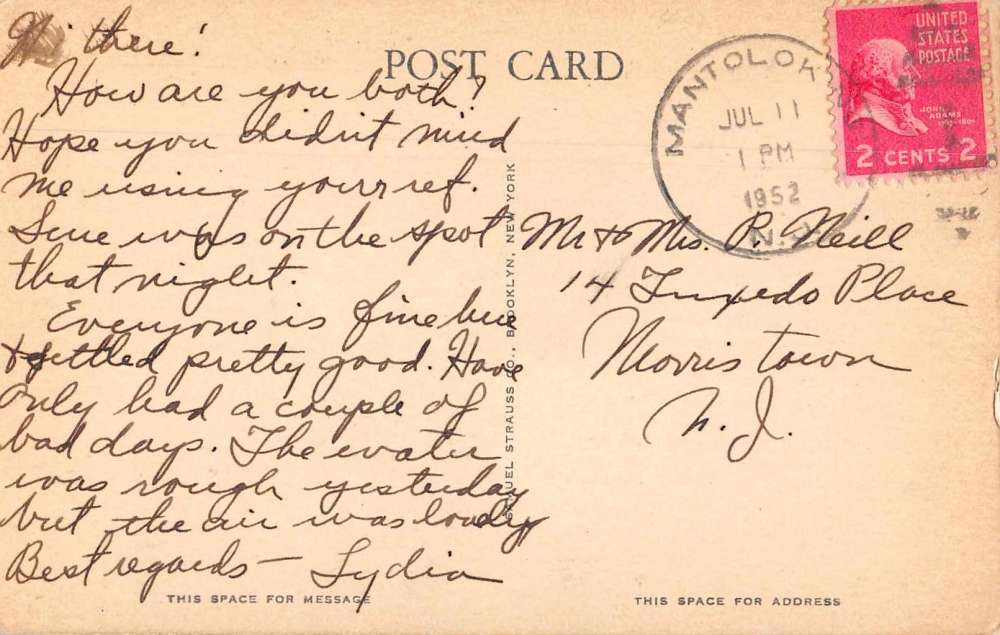 Hi there!
How are you both?
Hope you didn't mind
me using your ref.
Sure was on the spot
that night.
Everyone is fine here
& settled pretty good. Have
only had a couple of
bad days. The water
was rough yesterday
but the air was lovely
Best regards — Lydia
THIS SPACE FOR MESSAGE
POST CARD
SAMUEL STRAUSS CO., BROOKLYN, NEW YORK
MANTOLOK
JUL 11
1 PM
1952
N.J.
UNITED
STATES
POSTAGE
JOHN
ADAMS
2 CENTS 2
Mr & Mrs. P. Neill
14 Tuxedo Place
Morristown
N. J.
THIS SPACE FOR ADDRESS